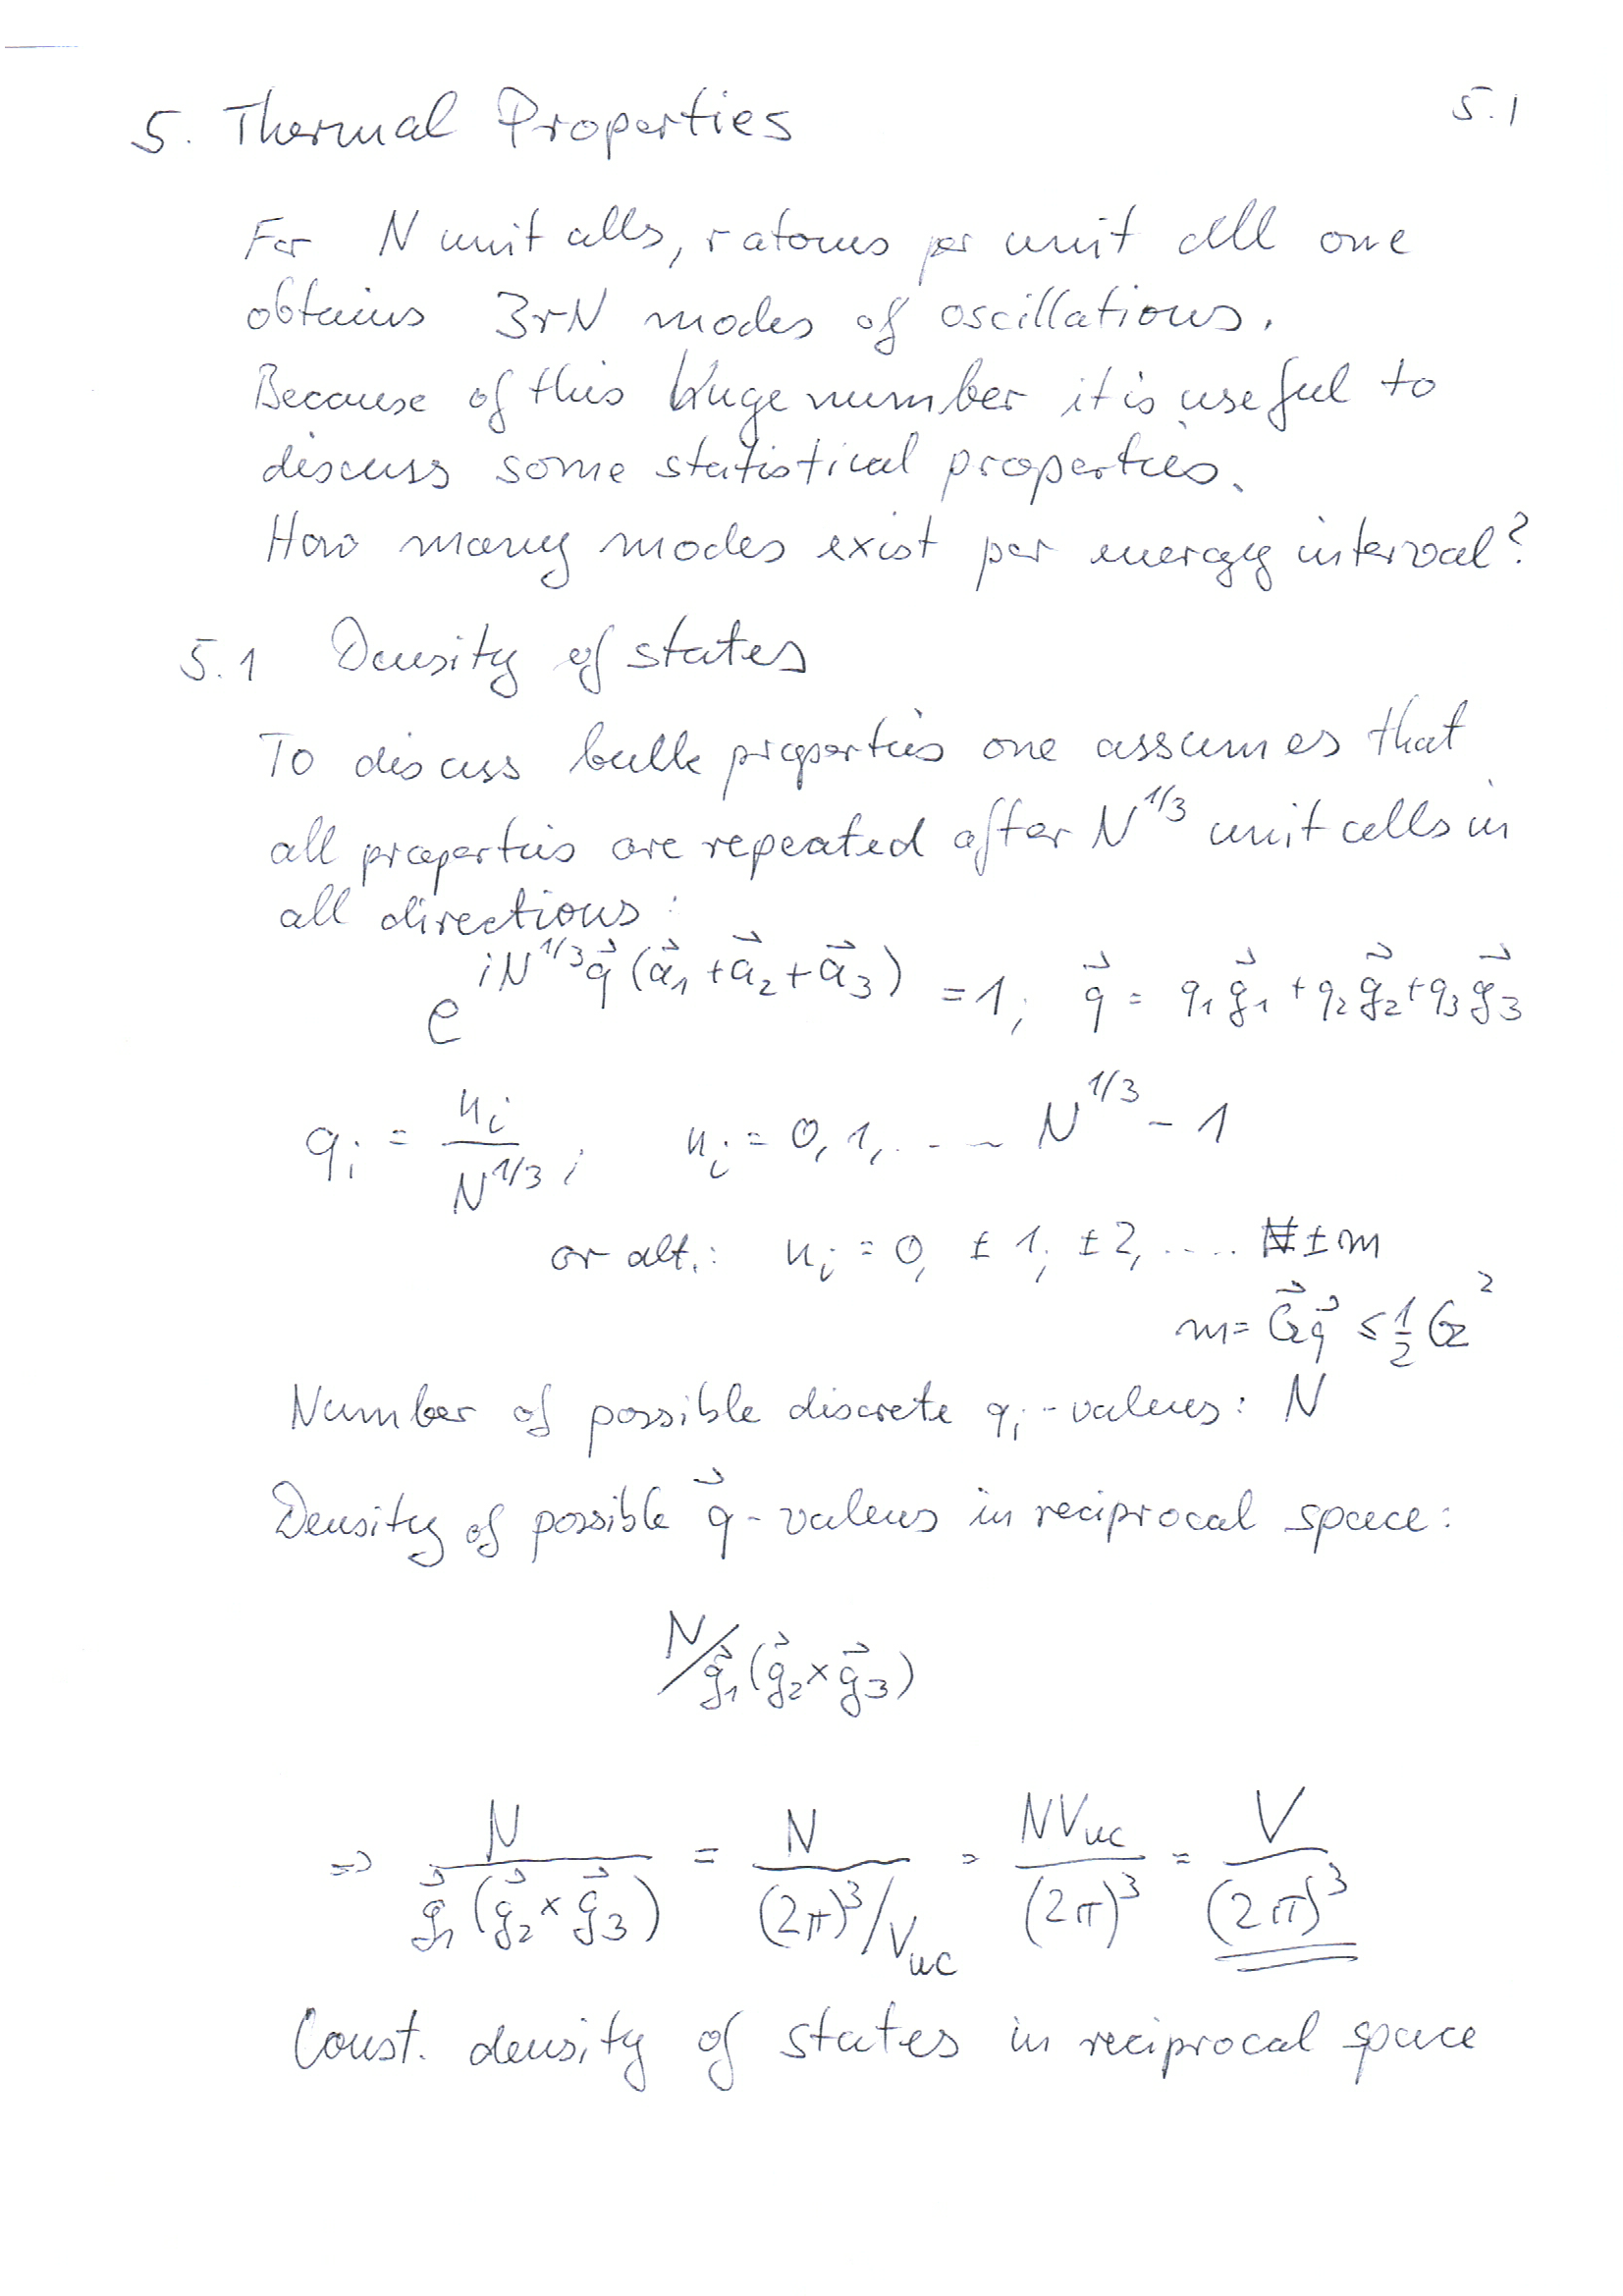 5. Thermal Properties 5.1
For N unit cells, r atoms per unit cell one
obtains 3rN modes of oscillations.
Because of this huge number it is useful to
discuss some statistical properties.
How many modes exist per energy interval?
5.1 Density of states
To discuss bulk properties one assumes that
all properties are repeated after N^{1/3} unit cells in
all directions:
e^{iN^{1/3} \vec{q} (\vec{a}_1 + \vec{a}_2 + \vec{a}_3)} = 1; \vec{q} = q_1 \vec{g}_1 + q_2 \vec{g}_2 + q_3 \vec{g}_3
q_i = \frac{n_i}{N^{1/3}}; n_i = 0, 1, .... N^{1/3} - 1
or alt.: n_i = 0, ± 1, ± 2, .... ± m
m = \vec{G} \vec{q} ≤ \frac{1}{2} G^2
Number of possible discrete q_i-values: N
Density of possible \vec{q}-values in reciprocal space:
N / \vec{g}_1 (\vec{g}_2 × \vec{g}_3)
=> \frac{N}{\vec{g}_1 (\vec{g}_2 × \vec{g}_3)} = \frac{N}{(2π)^3 / V_{uc}} = \frac{N V_{uc}}{(2π)^3} = \frac{V}{(2π)^3}
Const. density of states in reciprocal space